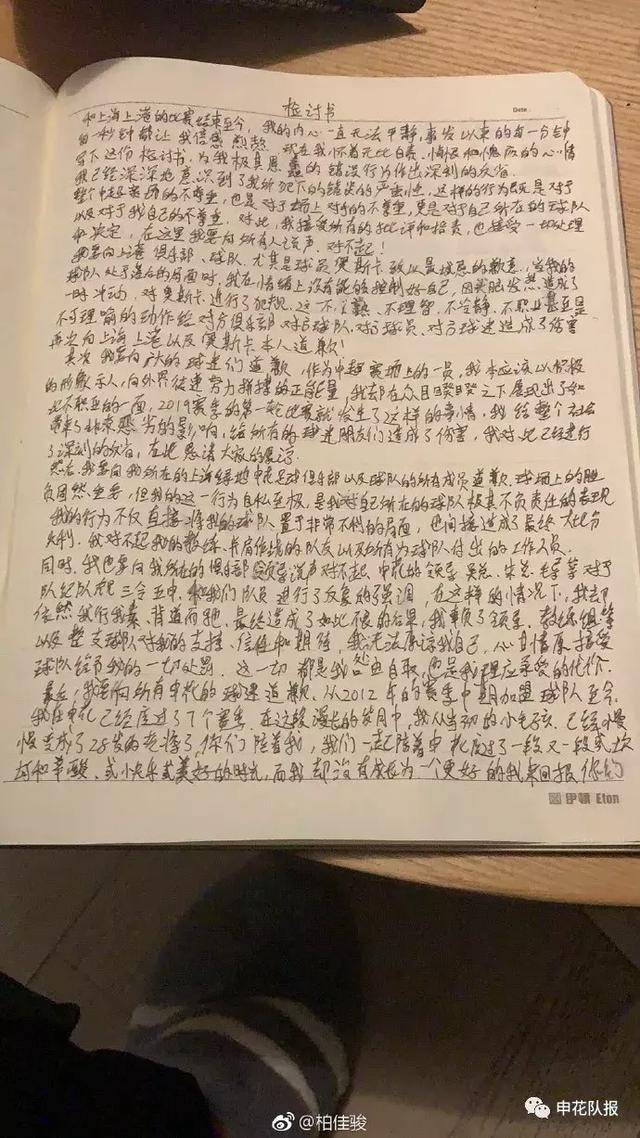 检讨书
Date
和上海上港的比赛结束至今，我的内心一直无法平静，事发以来的每一分钟
每一秒钟都让我倍感煎熬。现在我怀着无比自责、悔恨和愧疚的心情
写下这份检讨书，为我极其愚蠢的错误行为作出深刻的反省
我已经深深地意识到了我所犯下的错误的严重性，这样的行为既是对于
整个中超赛场的不尊重，也是对于场上对手的不尊重，更是对于自己所在的球队
以及对于我自己的不尊重。对此，我接受所有的批评和指责，也接受一切处理
和决定，在这里我要向所有人说声，对不起！
我要向上港俱乐部、球队、尤其是球员奥斯卡致以最诚恳的歉意，当我的
球队处于落后的局面时，我在情绪上没有能够控制好自己，因
一时冲动，对奥斯卡进行了犯规。这一不 、不理智、不冷静、不职业甚至是
不可理喻的动作给对方俱乐部对方球队、对方球员、对方球迷造成了伤害
再次向上海上港以及奥斯卡本人道歉！
其次 我要向广大的球迷们道歉，作为中超赛场上的一员，我本应该以积极
的 示人，向外界传递努力拼搏的正能量，我却在众目睽睽之下展现出了如
此不职业的一面，2019赛季的第一轮比赛就发生了这样的事情，我给整个社会
带来了非常恶劣的影响，给所有的球迷朋友们造成了伤害，我对此已经进行
了深刻的反省，在此恳请大家的原谅
然后，我要向我所在的上海绿地申花足球俱乐部以及球队的所有成员道歉，球场上的胜
负固然重要，但我的这一行为自私至极，是我对自己所在的球队极其不负责任的表现
我的行为不仅直接将我的球队置于非常不利的局面，也间接造成了最终大比分
失利。我对不起我的教练、并肩作战的队友以及所有为球队付出的工作人员
同时，我也要向我所在的俱乐部领导说声对不起，申花的领导吴总、朱总、毛导等对于
队纪队规三令五申，和我们队员进行了反复的强调，在这样的情况下，我却
依然我行我素、背道而驰，最终造成了如此不良的后果，我辜负了领导、教练组等
以及整支球队对我的支持、信任和期待，我无法原谅我自己，心甘情愿接受
球队给予我的一切处罚。这一切都是我咎由自取，也是我理应承受的代价。
最后，我要向所有申花的球迷道歉，从2012年的赛季中期加盟球队至今，
我在申花已经度过了7个赛季。在这段漫长的岁月中，我从当初的小毛孩，已经慢
慢变成了28岁的老将了，你们陪着我，我们一起陪着申花度过了一段又一段或坎
坷和辛酸、或小快乐或美好的时光，而我却没有成长为一个更好的我来回报你们
伊顿 Eton
@柏佳骏
申花队报